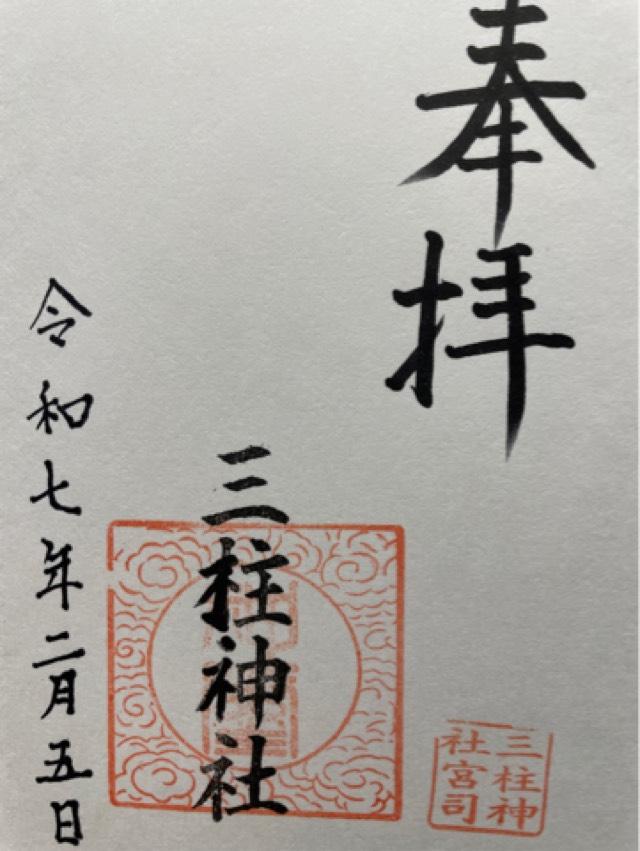 奉拝
三柱神社
三柱神
社宮司
令和七年二月五日